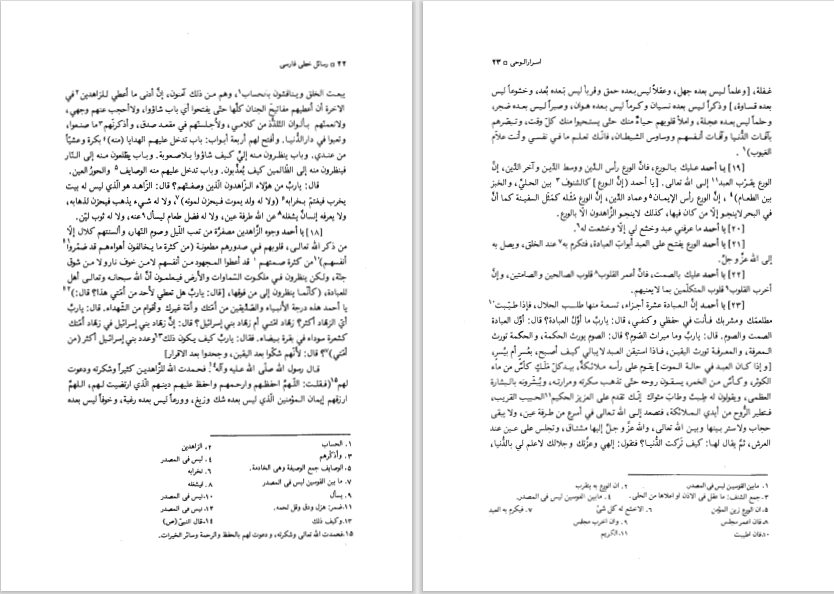 ۲۲ □ رسائل خطی فارسی
يبعث الخلق ويناقشون بالحساب۱، وهم من ذلك آمنون، إنّ أدنى ما أعطي للزاهدين۲ في
الآخرة أن أعطيهم مفاتيح الجنان كلّها حتّى يفتحوا أي باب شاؤوا، ولاأحجب عنهم وجهي،
ولأنعمنّهم بألوان التلذّذ من كلامي، ولأجلسنّهم في مقعد صدق، وأذكرنّهم۳ ما صنعوا،
وتعبوا في دارالدُّنيا. وأفتح لهم أربعة أبواب: باب تدخل عليهم الهدايا (منه)۴ بكرة وعشيّاً
من عندي. وباب ينظرون منه إليّ كيف شاؤوا بلاصعوبة. وباب يطّلعون منه إلى النّار
فينظرون منه إلى الظّالمين كيف يُعذّبون. وباب تدخل عليهم منه الوصايف۵ والحورُ العين.
قال: ياربّ من هؤلاء الزّاهدون الّذين وصفتهم؟ قال: الزّاهد هو الّذي ليس له بيت
يخرب فيغتمّ بخرابه۶ (ولا له ولد يموت فيحزن لموته)۷ ولا له شيء يذهب فيحزن لذهابه،
ولا يعرفه إنسانٌ يشغله۸ عن الله طرفة عين، ولا له فضل طعام ليسأل۹ عنه، ولا له ثوب ليّن.
[۱۸] يا أحمد وجوه الزّاهدين مصفرّة من تعب اللّيل وصوم النّهار، وألسنتهم كلال إلّا
من ذكر الله تعالى، قلوبهم في صدورهم مطعونة (من كثرة ما يخالفون أهواءهم قد ضمّروا۱۰
أنفسهم)۱۱ من كثرة صمتهم۱۲ قد أعطوا المجهود من أنفسهم لامن خوف نار ولا من شوق
جنّة، ولكن ينظرون في ملكوت السّماوات والأرض فيعلمون أنّ الله سبحانه وتعالى أهل
للعبادة، (كأنّما ينظرون إلى من فوقها، [قال: ياربّ هل تعطي لأحد من أمّتي هذا؟ قال:])
يا أحمد هذه درجة الأنبياء والصّدّيقين من أمّتك وأمّة غيرك وأقوام من الشّهداء. قال: ياربّ
أيّ الزهّاد أكثر؟ زهّاد امّتي أم زهّاد بني إسرائيل؟ قال: إنّ زهّاد بني إسرائيل في زهّاد أمّتك
كشعرة سوداء في بقرة بيضاء. فقال: ياربّ كيف يكون ذلك۱۳ وعدد بني إسرائيل أكثر (من
أمّتي)؟ قال: لأنّهم شكّوا بعد اليقين، وجحدوا بعد الاقرار]
قال رسول الله صلّى الله عليه وآله۱۴. فحمدت الله للزّاهدين كثيراً وشكرته ودعوت
لهم۱۵(فقلت: اللّهمّ احفظهم وارحمهم واحفظ عليهم دينهم الّذي ارتضيت لهم، اللهمّ
ارزقهم إيمان المؤمنين الّذي ليس بعده شك وزيغ، وورعاً ليس بعده رغبة، وخوفاً ليس بعده
۱. الحساب
۲. الزاهدين
۳. وأذكرهم
۴. ليس فى المصدر
۵. الوصايف جمع الوصيفة وهى الخادمة.
۶. لخرابه
۷. ما بين القوسين ليس فى المصدر
۸. ليشغله
۹. يسأل
۱۰. ليس فى المصدر
۱۱. ضمر: هزل ودق وقل لحمه.
۱۲. ليس فى المصدر
۱۳. وكيف ذلك
۱۴. قال النبىّ (ص)
۱۵. فحمدت الله تعالى وشكرته، ودعوت لهم بالحفظ والرحمة وسائر الخيرات.
اسرارالوحی □ ۲۳
غفلة، [وعلماً ليس بعده جهل، وعقلاً ليس بعده حمق وقرباً ليس بعده بُعد، وخشوعاً ليس
بعده قساوة،] وذكراً ليس بعده نسيان وكرماً ليس بعده هوان، وصبراً ليس بعده ضجر،
وحلماً ليس بعده عجلة، واملأ قلوبهم حياءً منك حتى يستحيوا منك كلّ وقت، وتبصّرهم
بآفات الدُّنيا وآفات أنفسهم ووساوس الشيطان، فانّك تعلم ما في نفسي وأنت علّام
الغيوب)۱.
[۱۹] يا أحمد عليك بالورع، فانّ الورع رأس الدّين ووسط الدّين وآخر الدّين، إنّ
الورع يقرّب العبد۲ إلى الله تعالى. [يا أحمد (إنّ الورع) كالشنوف۳ بين الحليّ، والخبز
بين الطعام)۴، إنّ الورع رأس الإيمان۵ وعماد الدّين، إنّ الورع مَثَله كمَثَل السفينة كما أنّ
في البحر لاينجو إلّا من كان فيها، كذلك لاينجو الزّاهدون الّا بالورع.
[۲۰] يا أحمد ما عرفني عبد وخشع لي إلّا وخشعت له۶.
[۲۱] يا أحمد الورع يفتح على العبد أبوابَ العبادة، فتكرم به۷ عند الخلق، ويصل به
إلى الله عزّوجلّ.
[۲۲] يا أحمد عليك بالصمت، فانّ أعمر القلوب۸ قلوب الصالحين والصامتين، وإنّ
أخرب القلوب۹ قلوب المتكلّمين بما لايعنيهم.
[۲۳] يا أحمد إنّ العبادة عشرة أجزاء، تسعة منها طلب الحلال، فإذا طيّبت۱۰
مطعمك ومشربك فأنت في حفظي وكنفي، قال: ياربّ ما أوّلُ العبادة؟ قال: أوّل العبادة
الصمت والصوم. قال: ياربّ وما ميراث الصّوم؟ قال: الصوم يورث الحكمة، والحكمة تورث
المعرفة، والمعرفة تورث اليقين، فاذا استيقن العبد لايبالي كيف أصبح، بعُسرٍ أم بيُسرٍ.
[وإذا كان العبد في حالة الموت] يقوم على رأسه ملائكةٌ، بيد كلّ مَلَكٍ كأسٌ من ماء
الكوثر، وكأسٌ من الخمر، يسقون روحه حتّى تذهب سكرته ومرارته، ويُبشّرونه بالبشارة
العظمى، ويقولون له طِبتَ وطابَ مثواك إنّك تقدم على العزيز الحكيم۱۱ الحبيب القريب،
فتطير الرُّوح من أيدي الملائكة، فتصعد إلى الله تعالى في أسرع من طرفة عين، ولا يبقى
حجاب ولاستر بينها وبين الله تعالى، والله عزّوجلّ إليها مشتاق، وتجلس على عين عند
العرش، ثمّ يقال لها: كيف تَركتِ الدُّنيا؟ فتقول: إلهي وعزّتك وجلالك لاعلم لي بالدُّنيا،
۱. مابين القوسين ليس فى المصدر.
۲. ان الورع به يتقرب
۳. جمع الشنف: ما علق فى الاذن او اعلاها من الحلى.
۴. مابين القوسين ليس فى المصدر.
۵. ان الورع زين المؤمن
۶. الاخشع له كل شئ
۷. فيكرم به العبد
۸. فان اعمر مجلس
۹. وان اخرب مجلس
۱۰. فان اطيبت
۱۱. الكريم